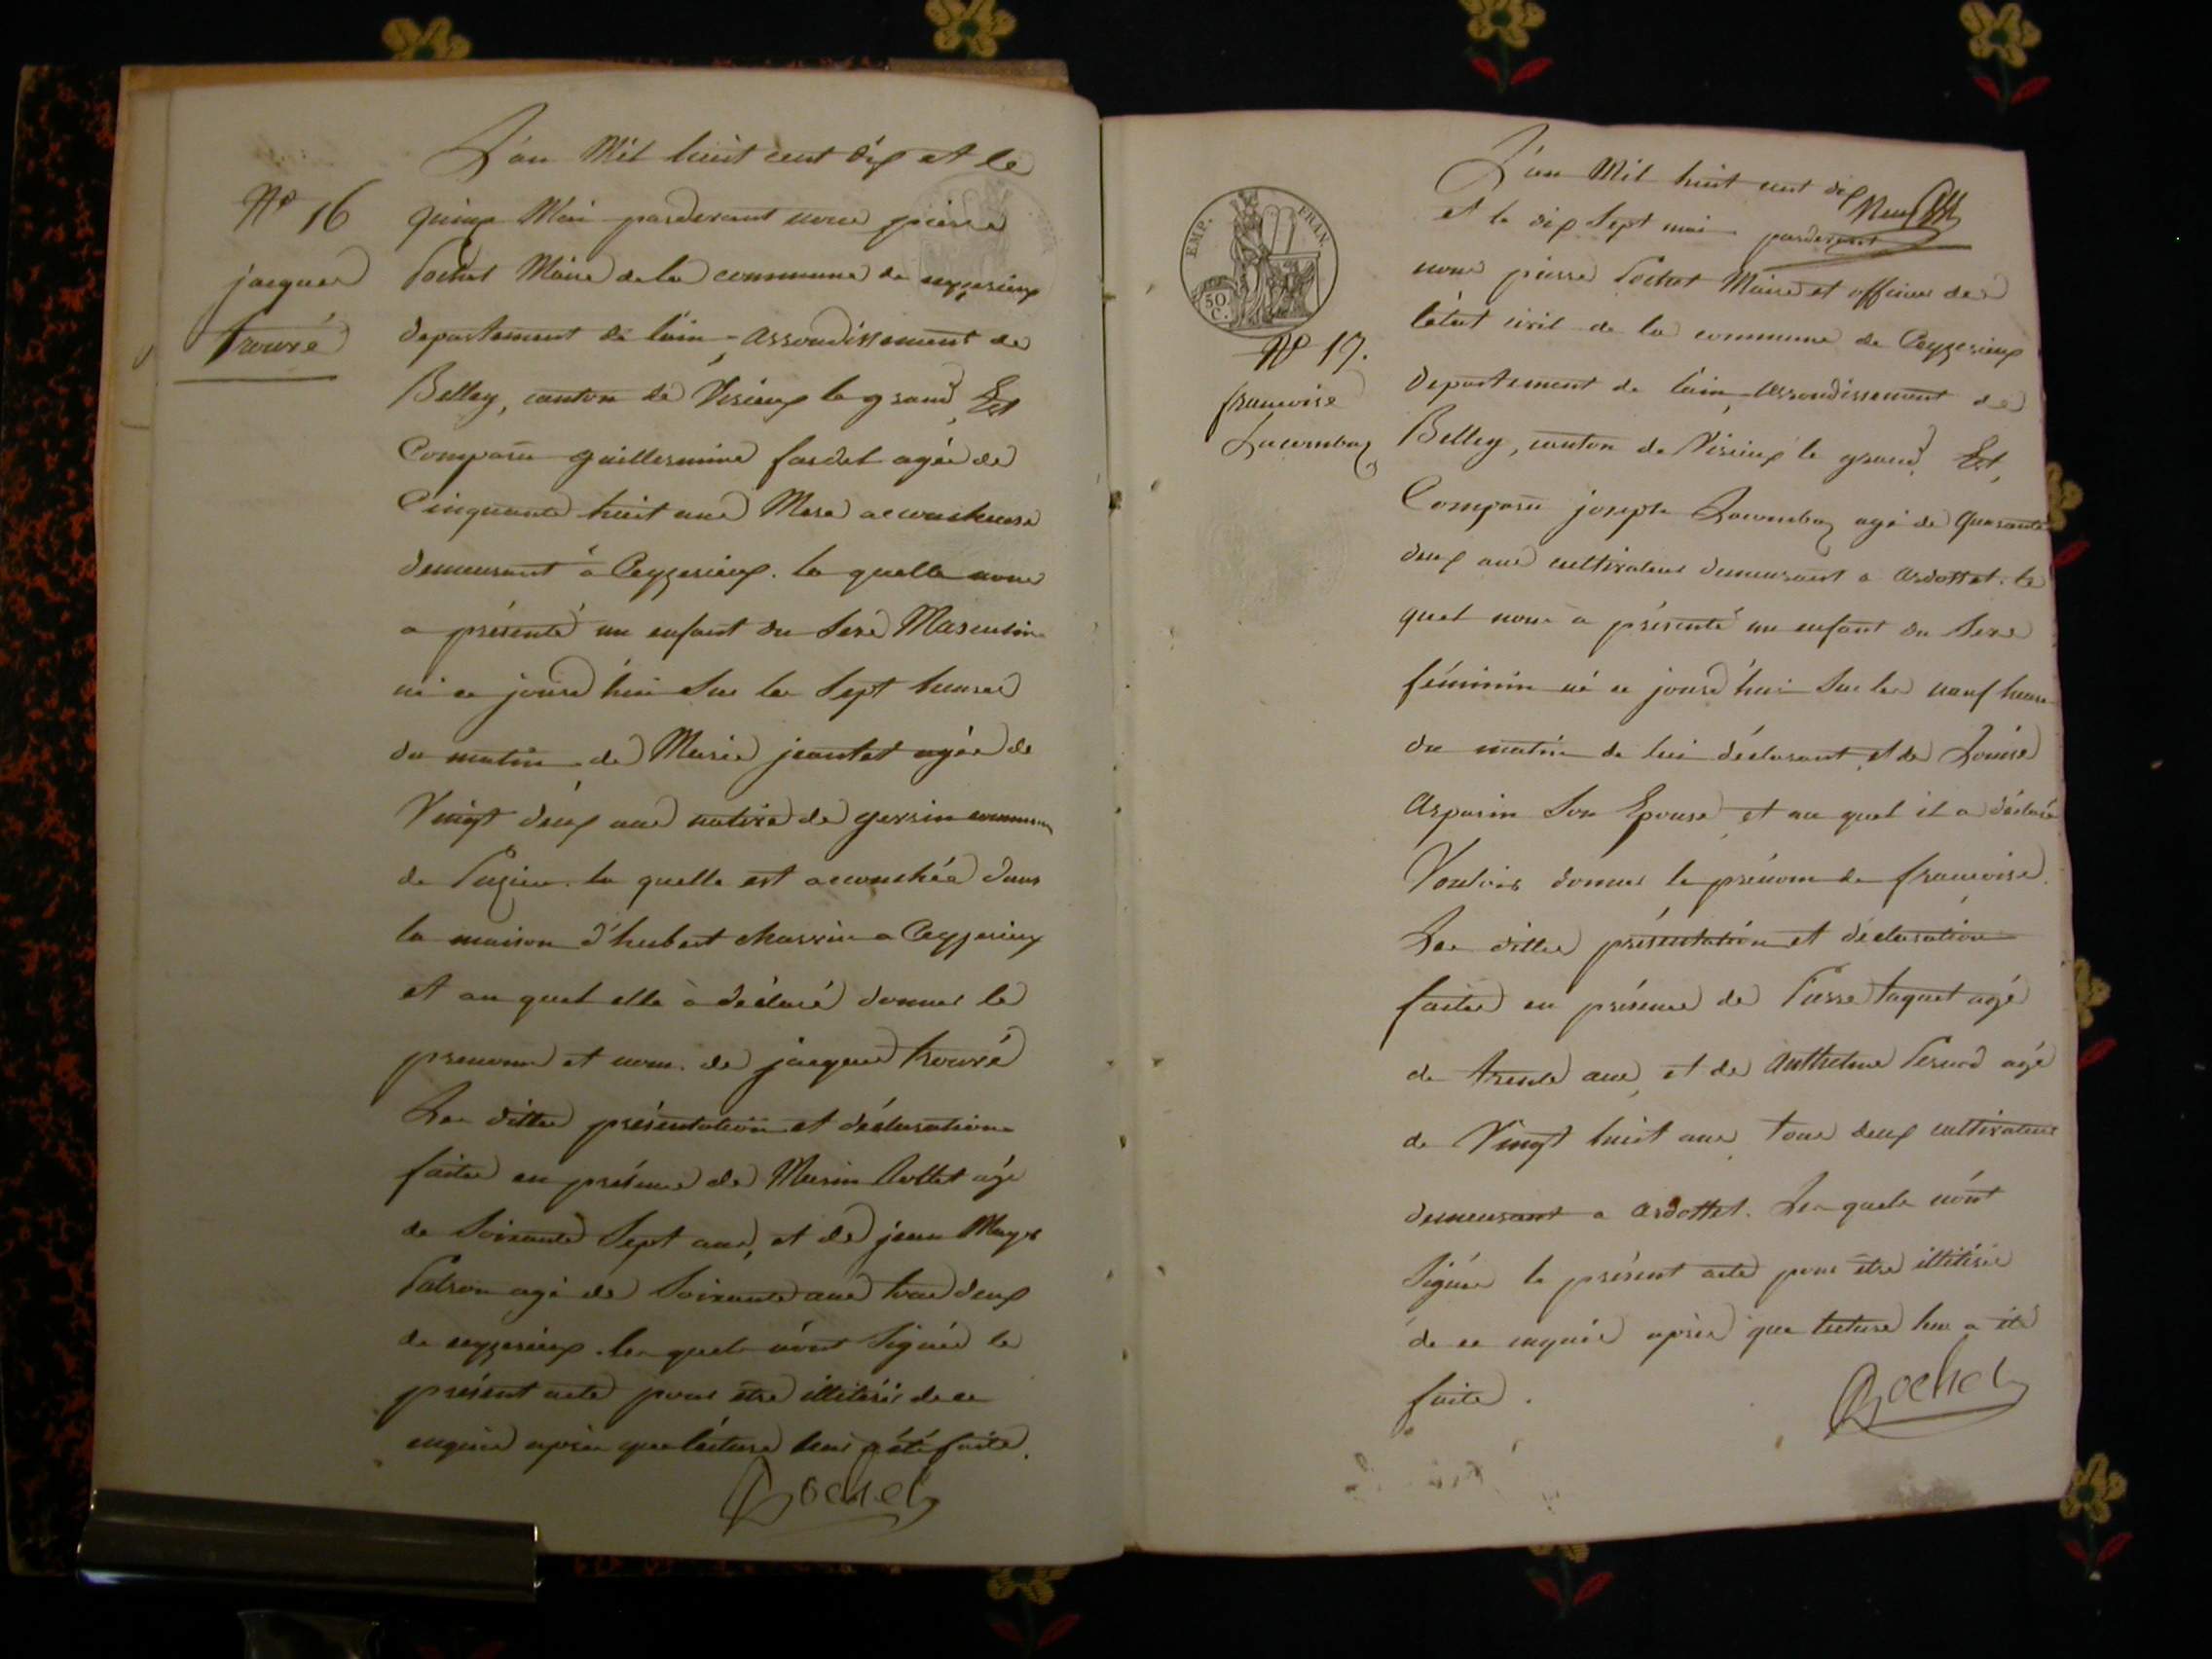 L'an Mil huit cent dix et le
N° 16
quinze Mai pardevant nous pierre
jacques
trouvé
Pochet Maire de la commune de ceyzerieux
departement de l'ain, arrondissement de
Belley, canton de Virieux le grand, Est
Comparu guillermine fardet agée de
Cinquante huit ans Mere accoucheuse
demeurant à Ceyzerieux. la quelle nous
a présenté un enfant du Sexe Masculin
né ce jourd'hui Sur les Sept heures
du matin de Marie jeantet agée de
Vingt deux ans native de
de Pugieu. la quelle est accouchée dans
la maison d'hubert charvin a Ceyzerieux
et au quel elle à déclaré donner le
prenom et nom de jacques trouvé
Les dittes présentation et déclaration
faites en présence de Marin age
de Soixante Sept ans, et de jean
Patron agé de Soixante ans tous deux
de ceyzerieux. les quels n'ont Signés le
présent acte pour être illitérés de ce
enquis après que lecture leur a été faite.
Pochet
L'an Mil huit cent dix Neuf
et le dix Sept mai pardevant
nous pierre Pochet Maire et officier de
EMP. FRAN.
50 C.
l'état civil de la commune de Ceyzerieux
N° 17.
departement de l'ain, arrondissement de
francoise
Lacombaz
Belley, canton de Virieux le grand. Est,
Comparu joseph Lacombaz agé de quarante
deux ans cultivateur demeurant a ardottet. le
quel nous à présenté un enfant du Sexe
féminin né ce jourd'hui Sur les neuf heures
du matin de lui déclarant, et de Louise
Asparin Son Epouse, et au quel il a déclaré
Vouloir donner le prénom de francoise.
Les dittes présentation et déclaration
faites en présence de Pierre taquet agé
de trente ans, et de Anthelme agé
de Vingt huit ans, tous deux cultivateurs
demeurant a ardottet. Les quels n'ont
Signés le présent acte pour être illitérés
de ce enquis après que lecture leur a été
faite.
Pochet